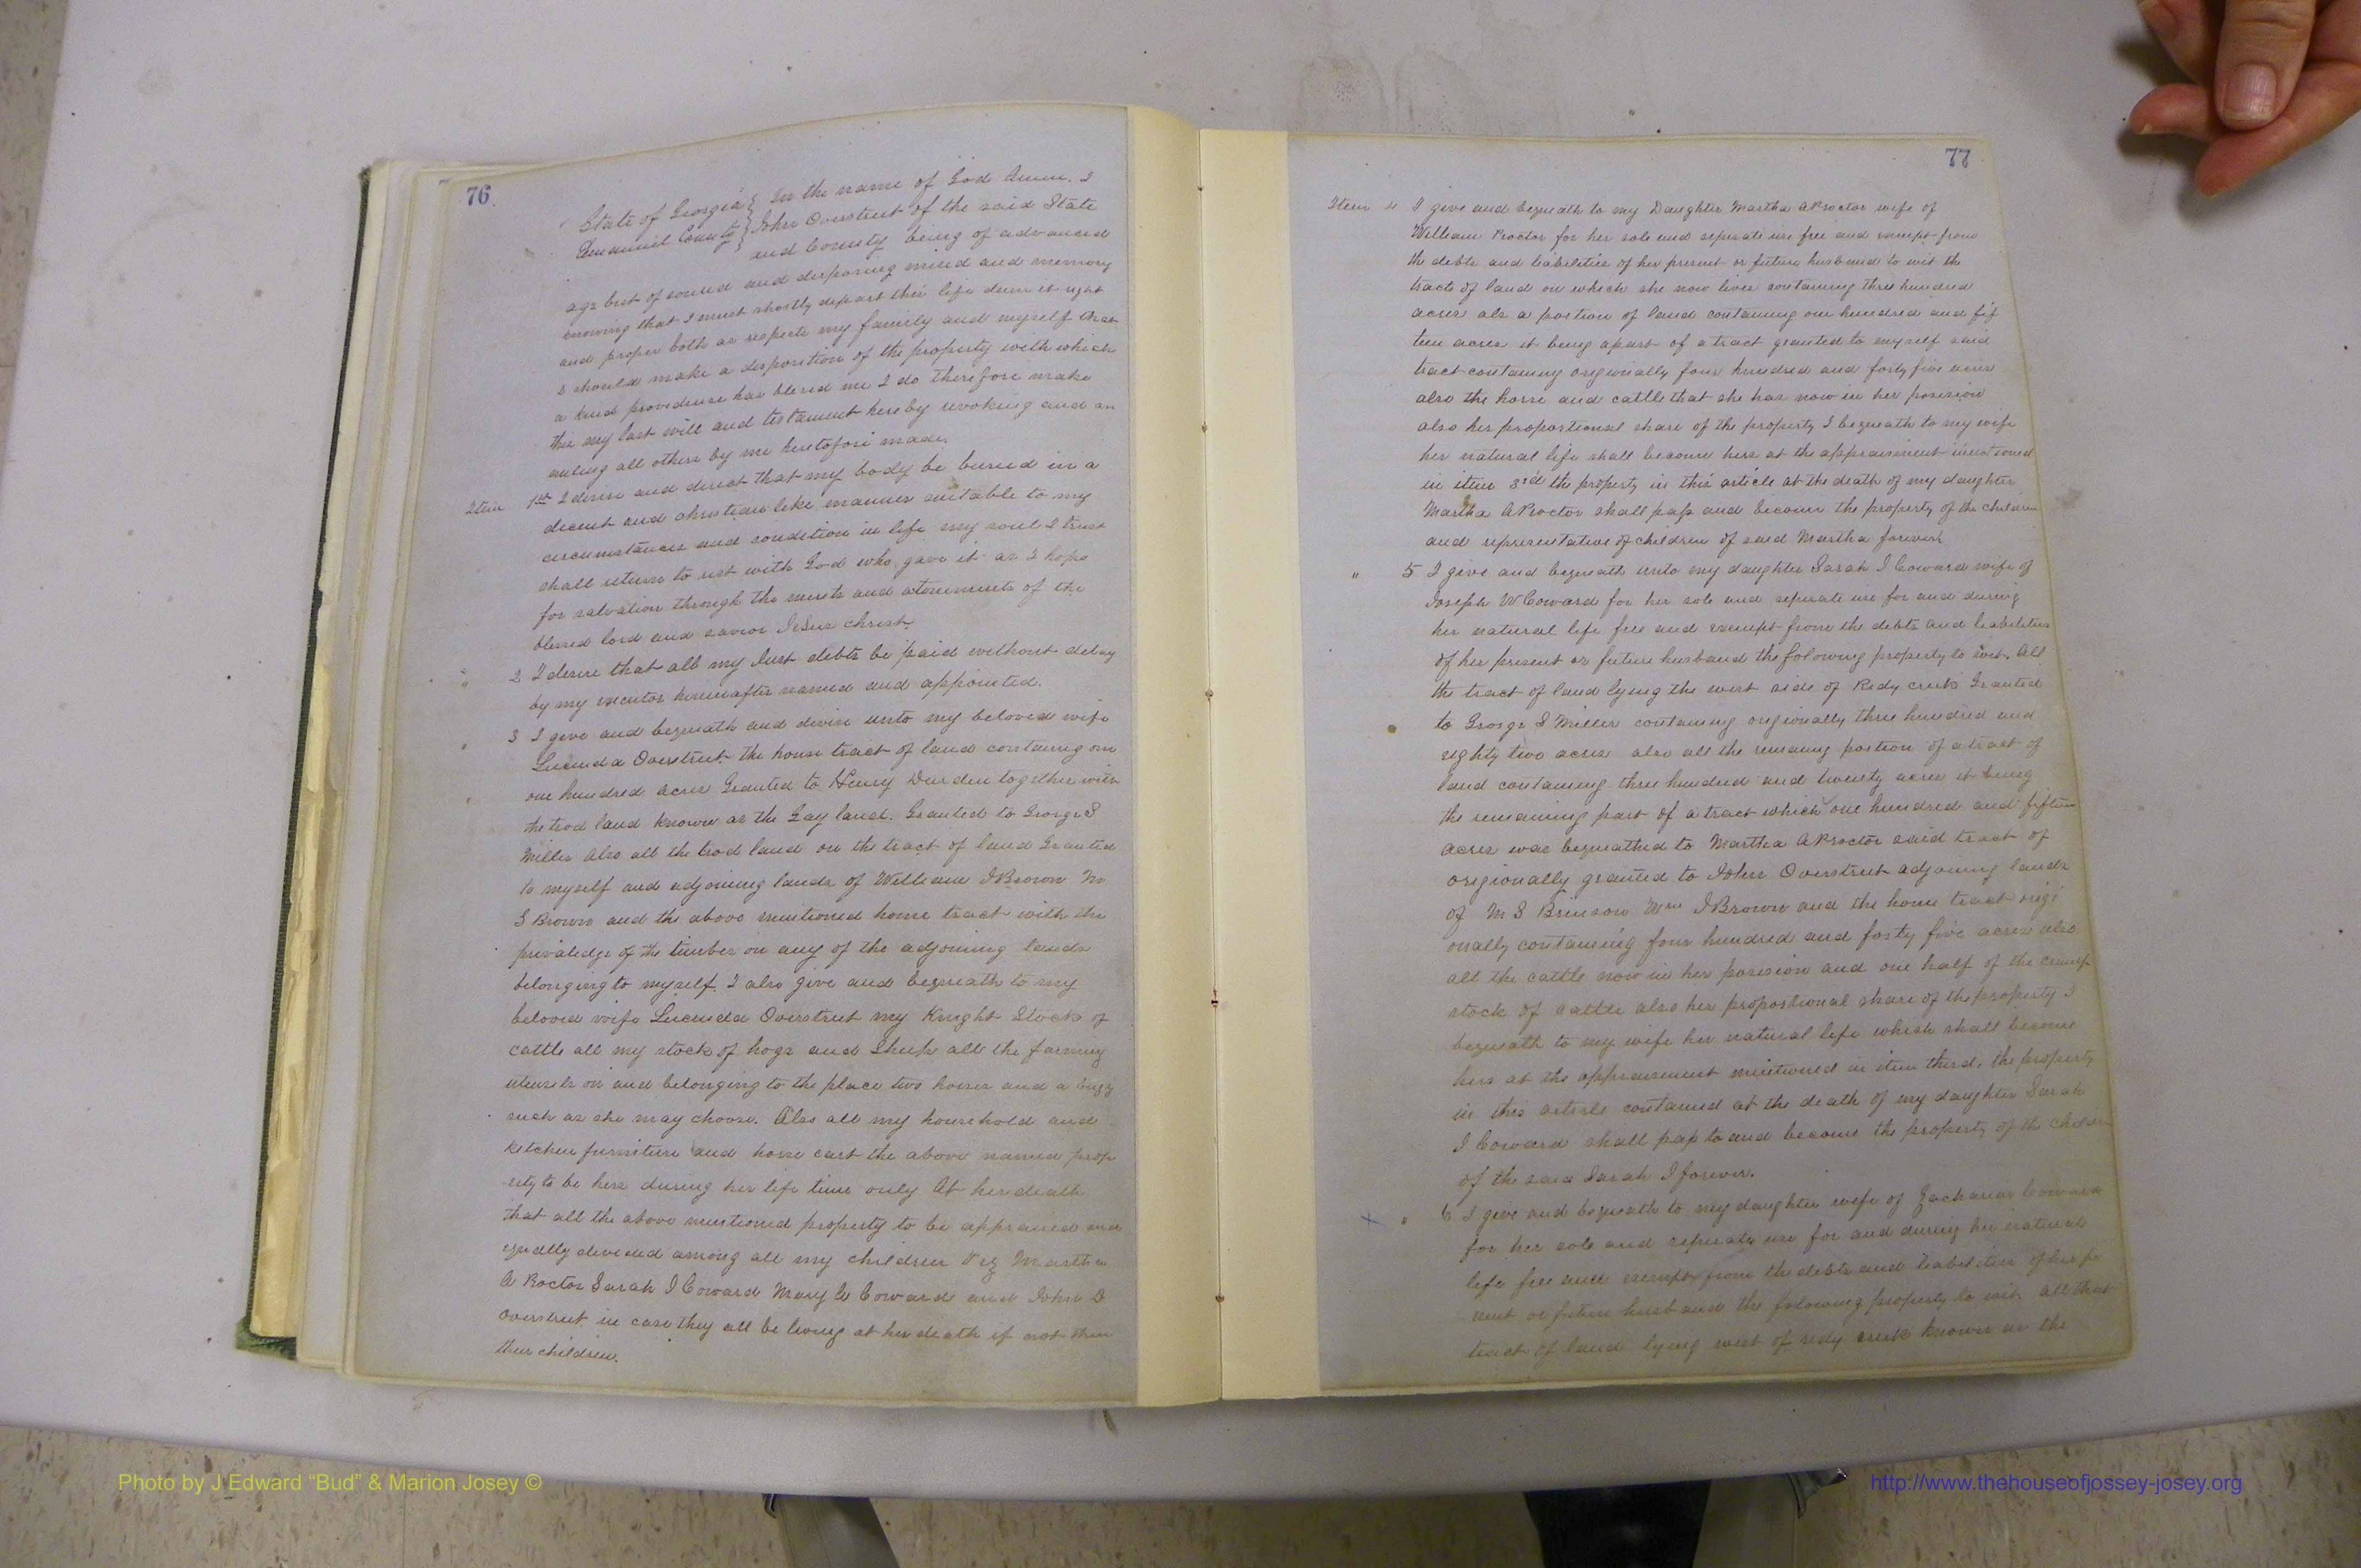 76
State of Georgia } In the name of God Amen. I
Emanuel County } John Overstreet of the said State
and County being of advanced
age but of sound and disposing mind and memory
knowing that I must shortly depart this life deem it right
and proper both as respects my family and myself that
I should make a disposition of the property with which
a kind providence has blessed me I do therefore make
this my last will and testament hereby revoking and an
nuling all others by me heretofore made.
Item 1st I desire and direct that my body be buried in a
decent and christian like manner suitable to my
circumstances and condition in life my soul I trust
shall return to rest with God who gave it as I hope
for salvation through the merits and atonements of the
blessed lord and savior Jesus christ.
" 2 I desire that all my Just debts be paid without delay
by my executor hereinafter named and appointed.
" 3 I give and bequeath and devise unto my beloved wife
Lucinda Overstreet the home tract of land containg one
one hundred acres Granted to Henry Durden together with
the trod land known as the Gay land. Granted to George S
Miller Also all the trod land on the tract of land Granted
to myself and adjoining lands of William J Brown M
S Brown and the above mentioned home tract with the
privaledge of the timber on any of the adjoining lands
belonging to myself. I also give and bequeath to my
beloved wife Lucinda Overstreet my Knight Stock of
cattle all my stock of hogs and Sheep all the farming
utensels on and belonging to the place two horses and a buggy
such as she may choose. Also all my household and
Kitchen furniture and horse cart the above named prop
-erty to be hers during her life time only At her death
that all the above mentioned property to be appraised and
equally devided among all my children Viz Martha
A Proctor Sarah J Coward Mary Coward and John D
Overstreet in case they all be living at her death if not then
their children.
77
Item 4 I give and bequeath to my Daughter Martha A Proctor wife of
William Proctor for her sole and seperate use free and exempt from
the debts and liabilities of her present or future husband to wit the
tracts of land on which she now lives containing three hundred
acres als a portion of land containing one hundred and fif
teen acres it being apart of a tract granted to myself said
tract containg origionally four hundred and forty five acres
also the horse and cattle that she has now in her posesion
also her proportional share of the property I bequeath to my wife
her natural life shall become hers at the appraisment mentioned
in item 3rd the property in this article at the death of my daughter
Martha A Proctor shall pass and become the property of the children
and representative of children of said Martha forever.
" 5 I give and bequeath unto my daughter Sarah J Coward wife of
Joseph W Coward for her sole and seperate use for and during
her natural life free and exempt from the debts and liabilities
of her present or future husband the folowing property to wit. All
the tract of land lying the west side of Redy creek Granted
to George S Miller containing origionally three hundred and
eighty two acres also all the remaing portion of a tract of
land containing three hundred and twenty acres it being
the remaining part of a tract which one hundred and fifteen
acres was bequeathed to Martha A Proctor said tract of
origionally granted to John Overstreet adjoining lands
of M S Brinson Wm J Brown and the home tract origi
onally containing four hundred and forty five acres also
all the cattle now in her posesion and one half of the
stock of cattle also her proportional share of the property I
bequeath to my wife her natural life which shall become
hers at the appraisement mentioned in item third, the property
in this article contained at the death of my daughter Sarah
J Coward shall pass to and become the property of the children
of the said Sarah J forever.
x " 6 I give and bequeath to my daughter wife of Zachariah Coward
for her sole and seperate use for and during her natural
life free and exempt from the debts and liabilities of her pe
-sent or future husband the folowing property to wit all that
tract of land lying west of redy creek known as the
Photo by J Edward “Bud” & Marion Josey ©
http://www.thehouseofjossey-josey.org